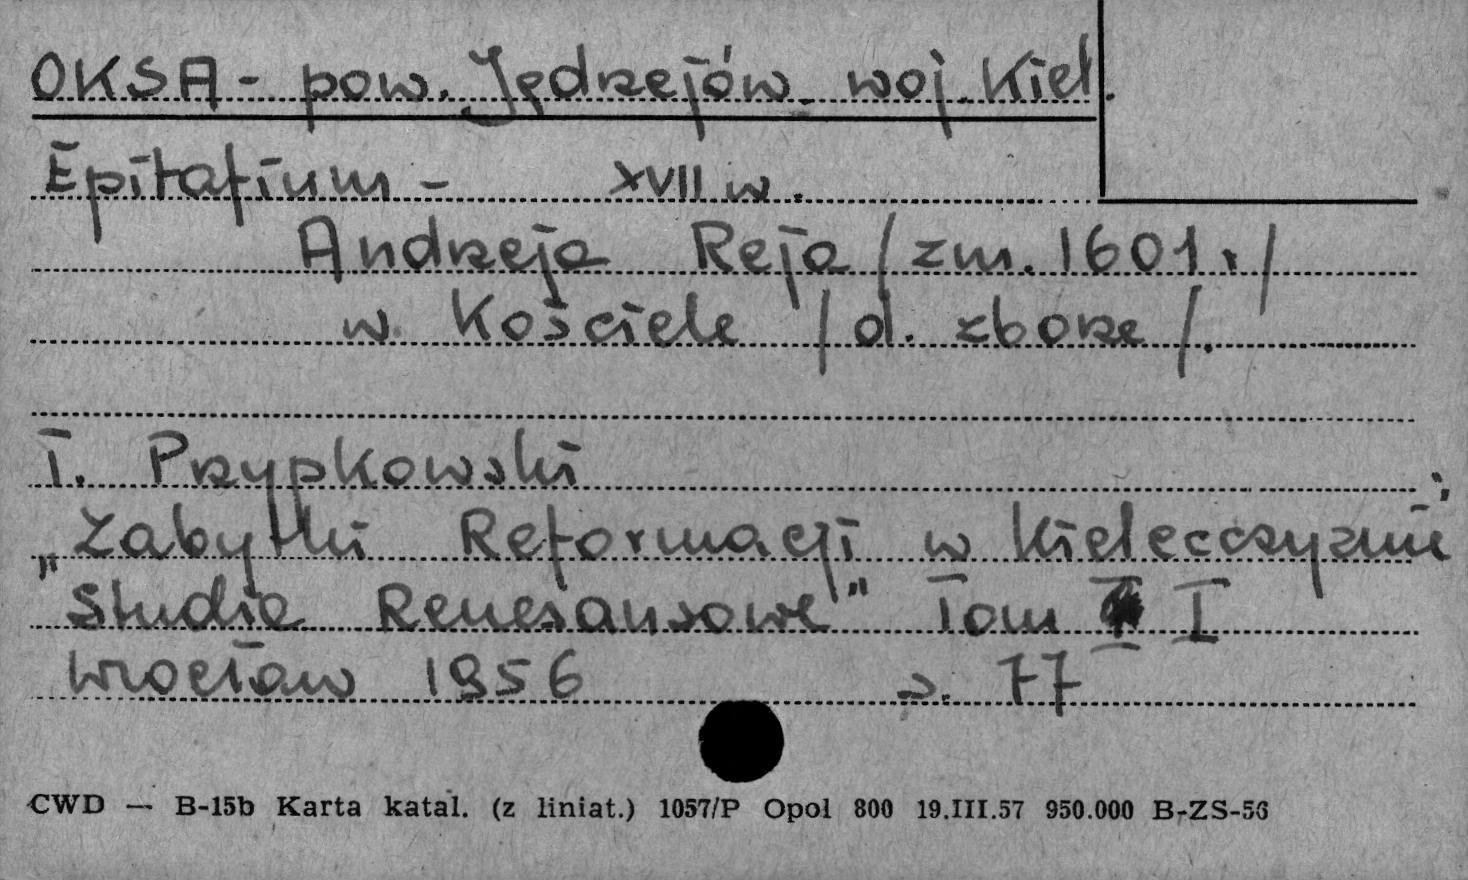 OKSA - pow. Jędrzejów. woj. Kiel.
Epitafium - XVII w.
Andrzeja Reja /zm. 1601 r/
w Kościele /d. zborze/.
T. Przypkowski
"Zabytki Reformacji w Kielecczyźnie;
Studia Renesansowe" Tom I
Wrocław 1956 s. 77
CWD — B-15b Karta katal. (z liniat.) 1057/P Opol 800 19.III.57 950.000 B-ZS-56